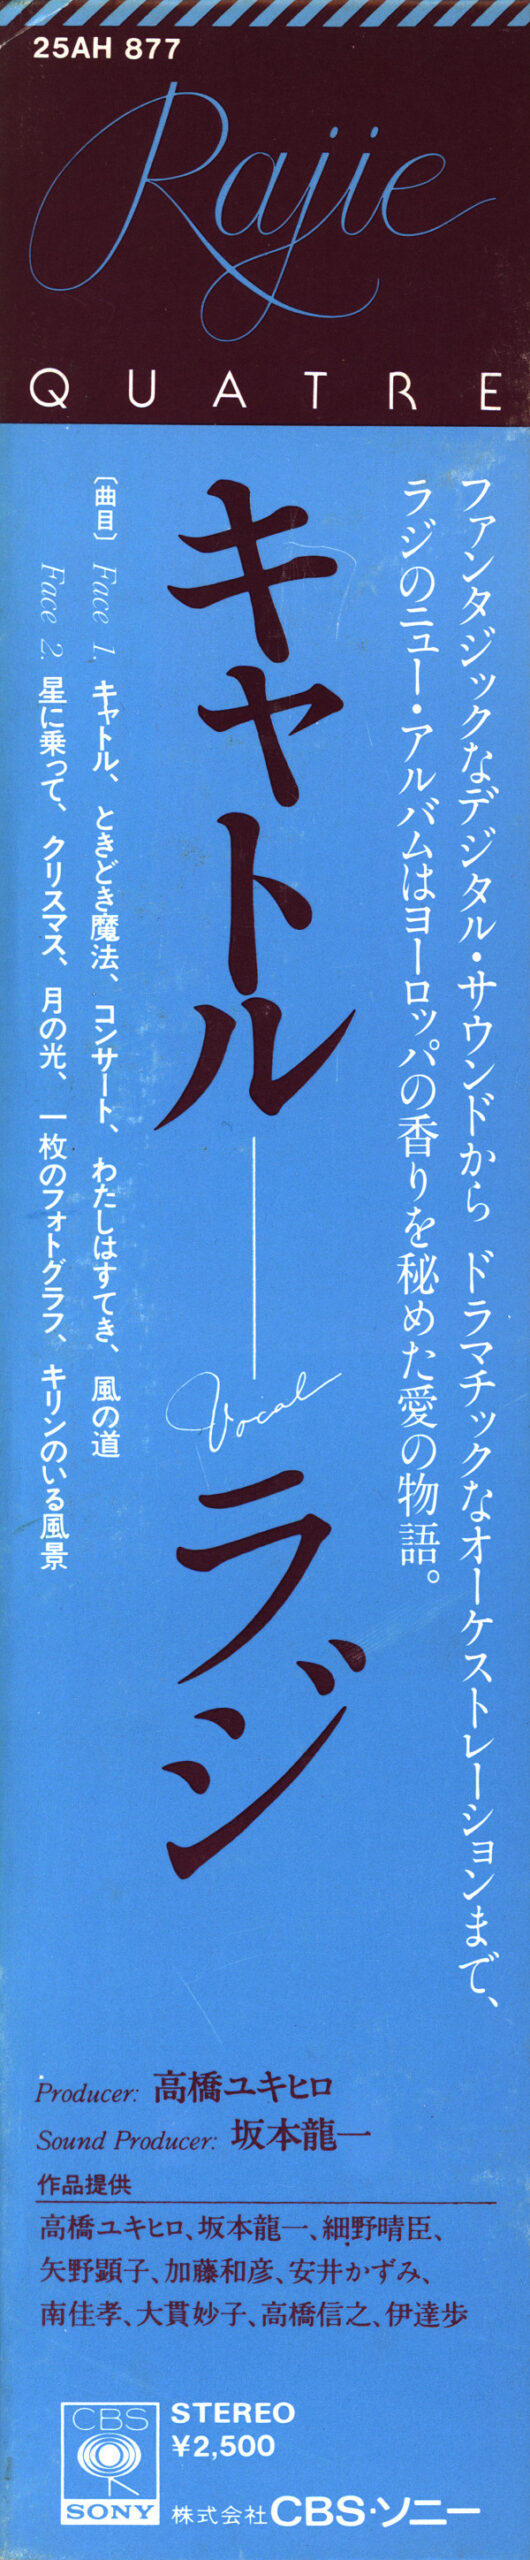 25AH 877
Rajie
QUATRE
ファンタジックなデジタル・サウンドから ドラマチックなオーケストレーションまで、
ラジのニュー・アルバムはヨーロッパの香りを秘めた愛の物語。
キャトル
Vocal
ラジ
〔曲目〕 Face 1. キャトル、ときどき魔法、コンサート、わたしはすてき、風の道
Face 2. 星に乗って、クリスマス、月の光、一枚のフォトグラフ、キリンのいる風景
Producer: 高橋ユキヒロ
Sound Producer: 坂本龍一
作品提供
高橋ユキヒロ、坂本龍一、細野晴臣、
矢野顕子、加藤和彦、安井かずみ、
南佳孝、大貫妙子、高橋信之、伊達歩
CBS
SONY
STEREO
¥2,500
株式会社CBS・ソニー